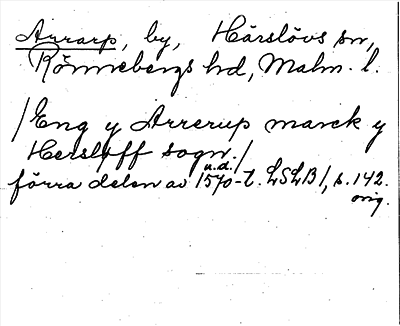 Arrarp, by, Härslövs sn,
Rönnebergs hd, Malm. l.
/Eng y Arrerup marck y
Hersløff sogn./
u.d.
förra delen av 1570-t. LSLB1, s. 142.
orig.